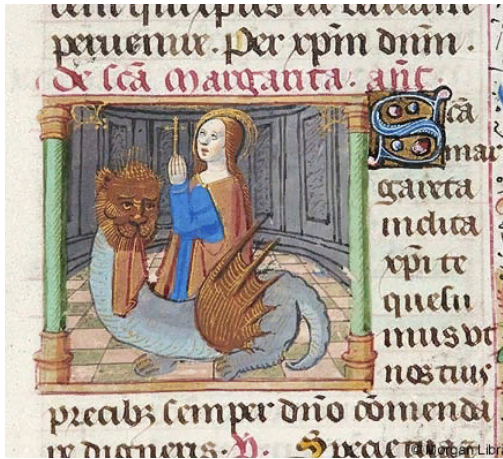 peruenire. Per xp̄m dn̄m.
de sc̄a Margarita. an̄t.
Sc̄a
mar
gareta
inclita
xp̄i te
quesu
mus vt
nos tuis
precibꝫ semper dn̄o cōmenda
re digneris. V. Specie tua
© Morgan Libr